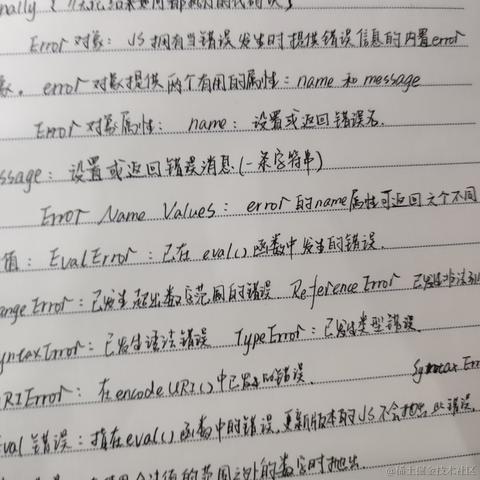 nally { 无论结果如何都执行的代码块 }
Error 对象：JS 拥有当错误发生时提供错误信息的内置error
象。error 对象提供两个有用的属性：name 和 message
Error 对象属性： name：设置或返回错误名.
ssage：设置或返回错误消息(一条字符串)
Error Name Values：error 的name属性可返回六个不同
值：EvalError：已在 eval() 函数中发生的错误.
angeError：已发生超出数字范围的错误 ReferenceError 已发生非法引
yntaxError：已发生语法错误 TypeError：已发生类型错误.
RIError：在encodeURI()中已发生的错误. Syntax Err
val 错误：指在eval()函数中的错误,更新版本的JS不会抛出此错误,
的范围之外的数字时抛出
@稀土掘金技术社区